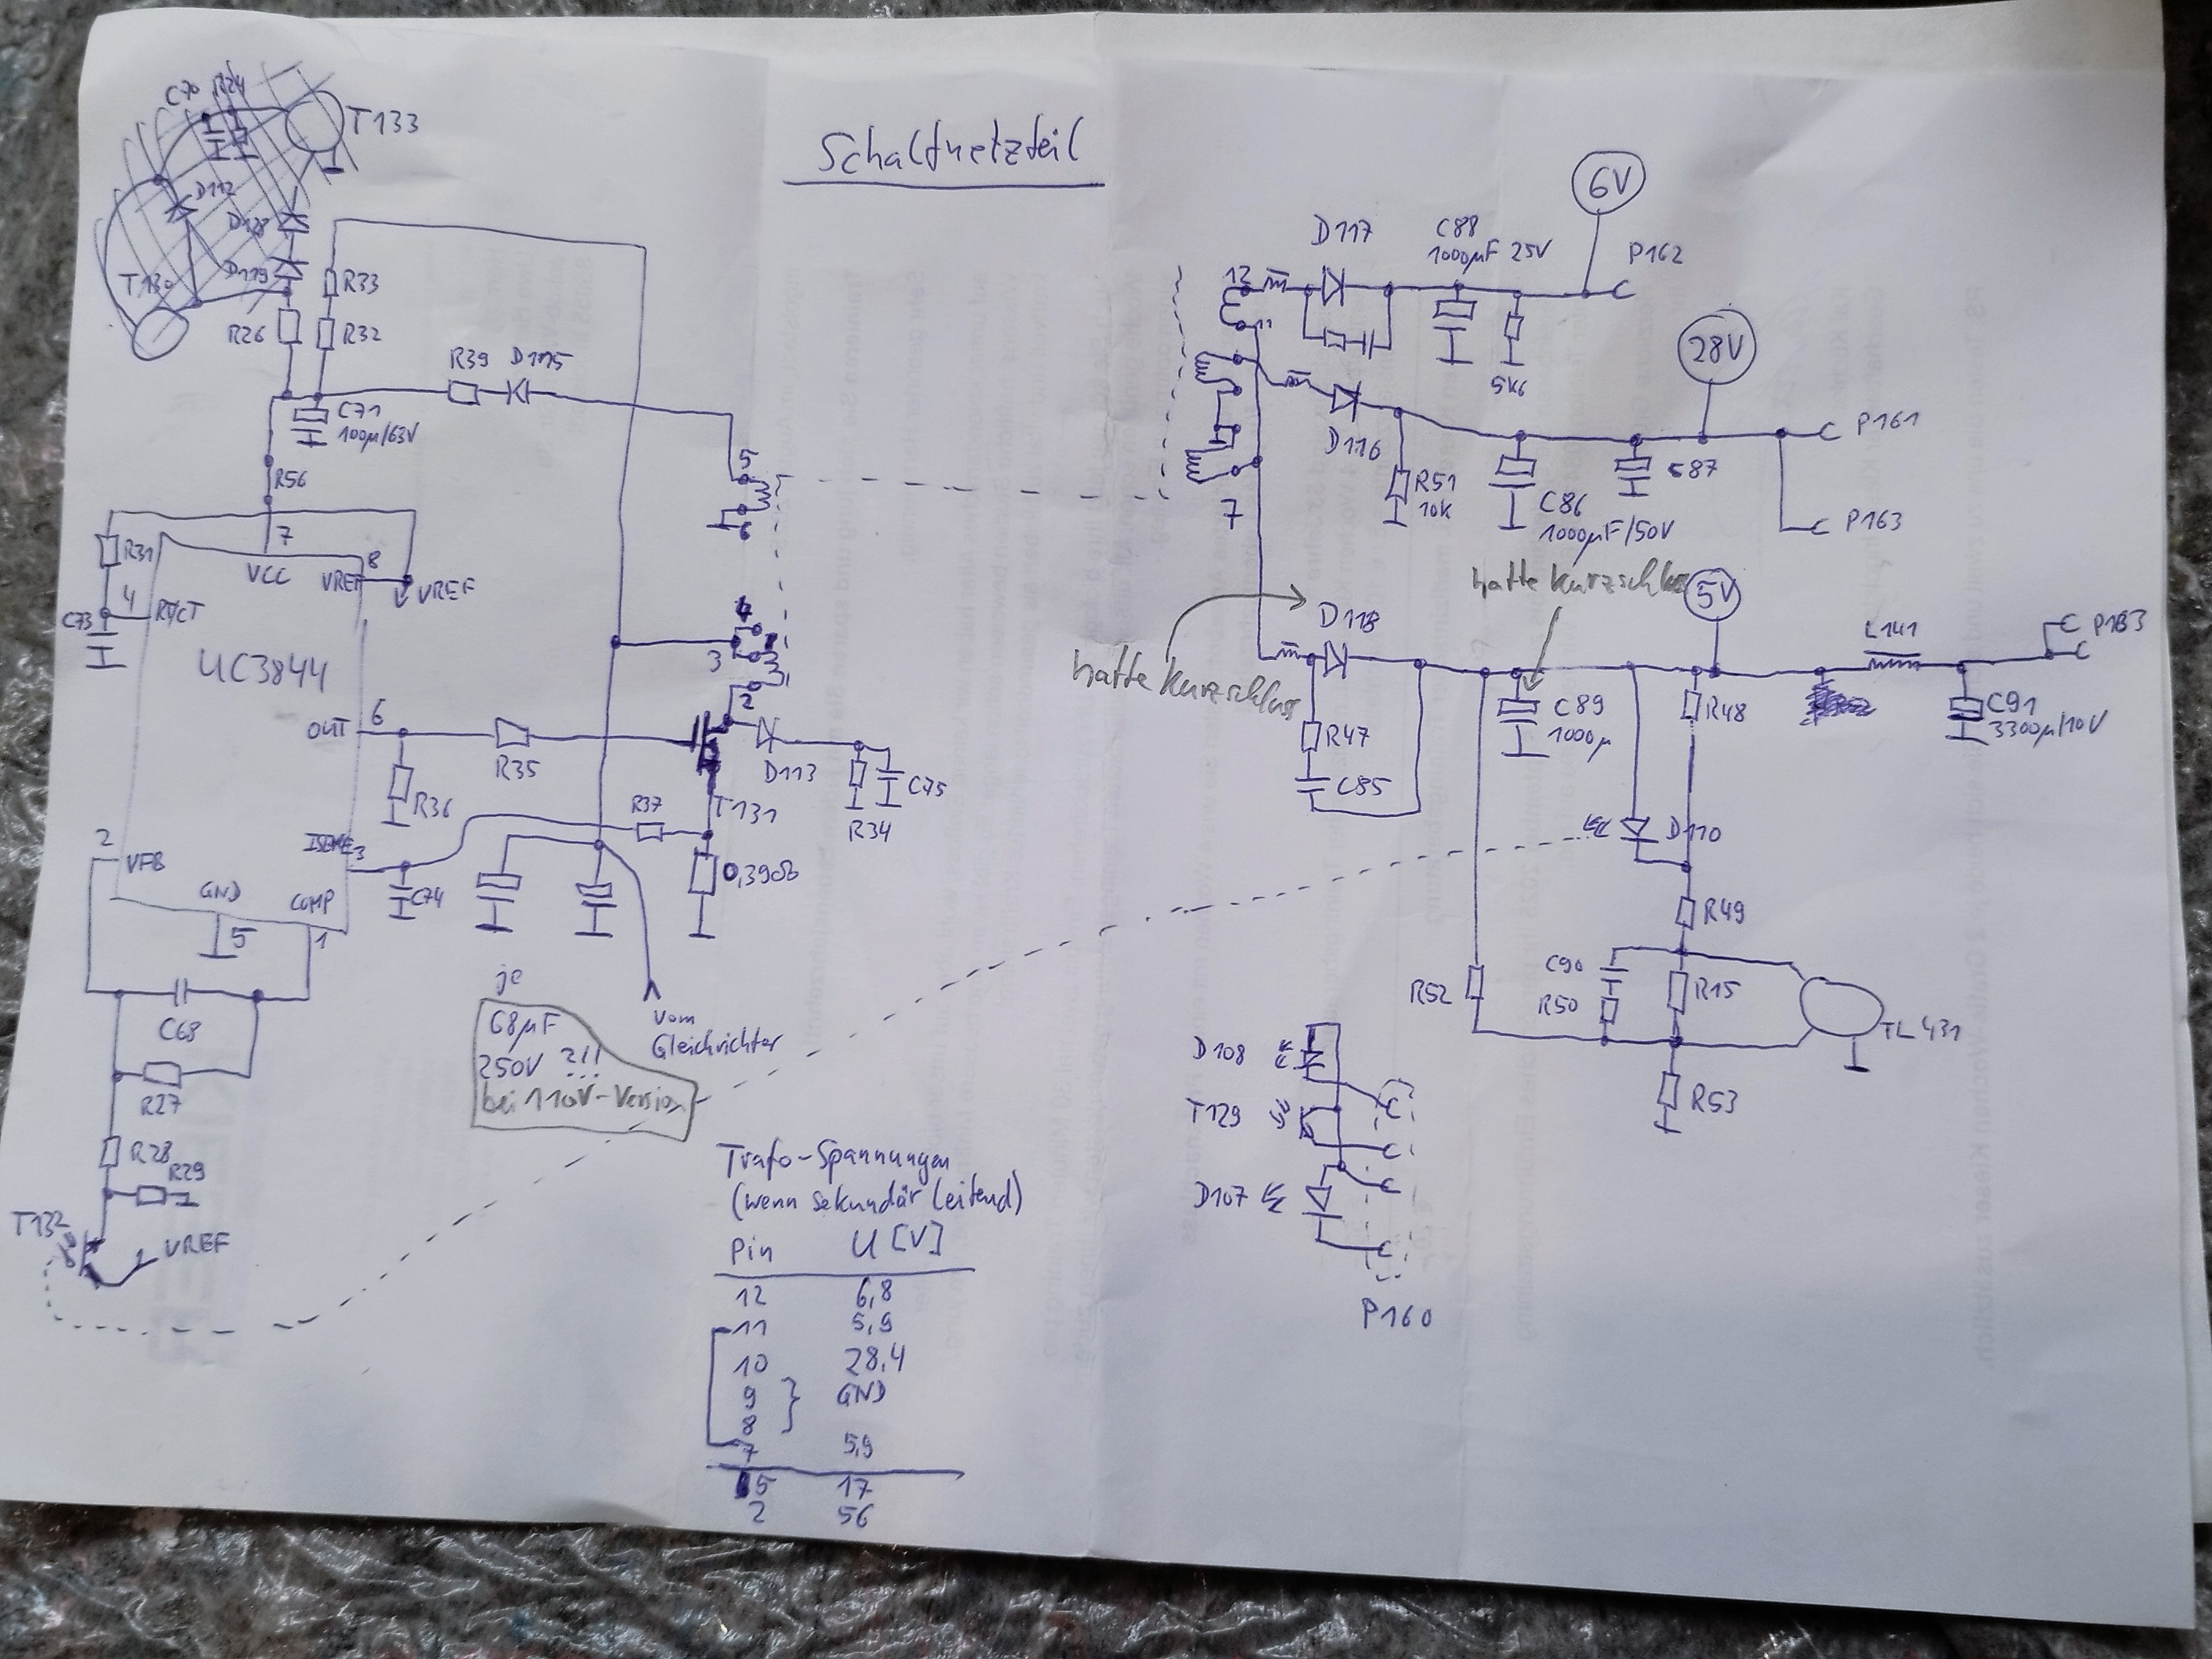 Schaltnetzteil
C70
R24
T133
D112
D128
D119
T130
R33
R26
R32
R39
D115
C71
100µ/63V
R56
R31
7
VCC
8
VREF
VREF
4
RT/CT
C73
UC3844
OUT
6
R35
R36
5
6
4
3
2
D113
T131
C75
R34
R37
0,39Ω
3
C74
2
VFB
GND
COMP
5
1
C68
R27
R28
R29
T132
VREF
je
68µF
250V ?!!
bei 110V-Version
vom
Gleichrichter
Trafo-Spannungen
(wenn sekundär leitend)
Pin U [V]
12 6,8
11 5,9
10 28,4
9 } GND
8
7 5,9
5 17
2 56
6V
D117
C88
1000µF 25V
P162
12
11
5k6
28V
D116
R51
10k
C86
1000µF/50V
C87
P161
P163
7
hatte Kurzschluss
hatte Kurzschluss
5V
D118
R47
C85
C89
1000µ
R48
L141
P183
C91
3300µ/10V
D110
R49
C90
R50
R15
R52
TL431
R53
D108
T129
D107
P160